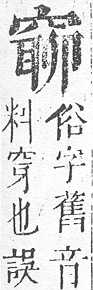 俗字舊音
料穿也誤